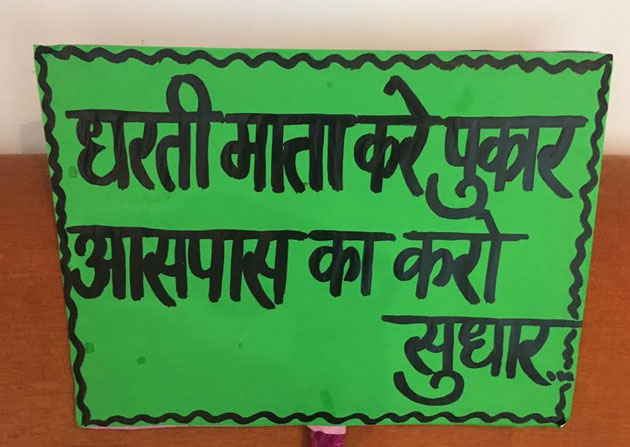 धरती माता करे पुकार
आसपास का करो
सुधार...